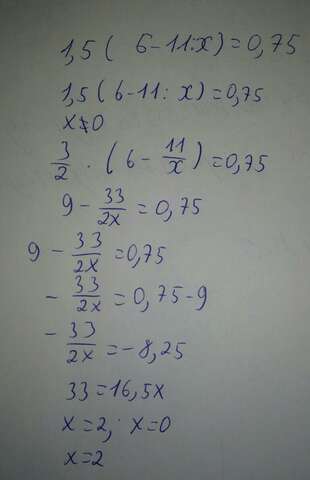 1,5 ( 6-11:x)=0,75
1,5(6-11: x)=0,75
x≠0
3/2 · (6- 11/x)=0,75
9- 33/2x =0,75
9- 33/2x =0,75
- 33/2x =0,75-9
- 33/2x =-8,25
33=16,5x
x=2; x=0
x=2